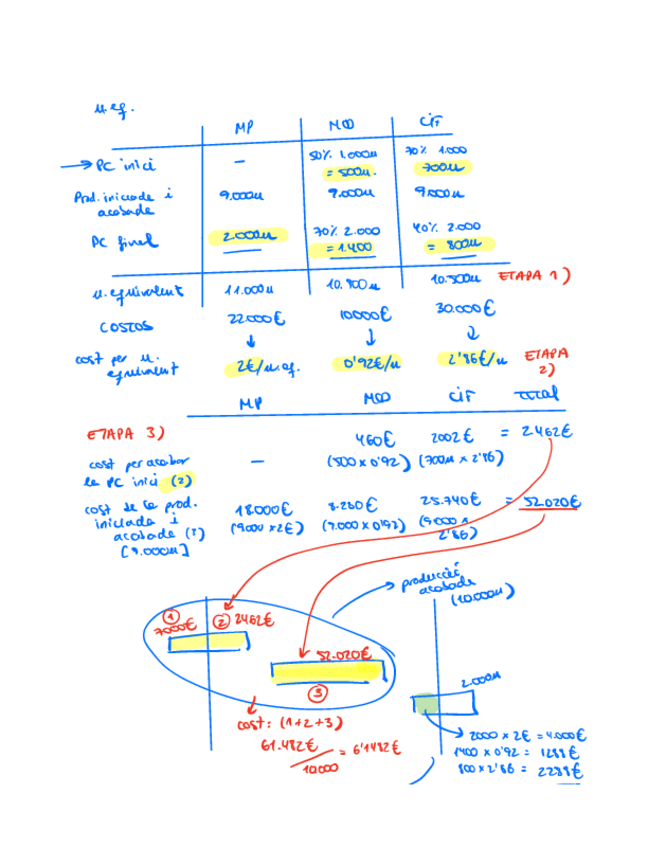 u.eq.
MP MOD CIF
→ PC inici — 50% 1.000u = 500u. 70% 1.000 700u
Prod. iniciada i acabada 9.000u 9.000u 9.000u
PC final 2.000u 70% 2.000 = 1.400 40% 2.000 = 800u
u. equivalent 11.000u 10.900u 10.500u ETAPA 1)
COSTOS 22.000€ 10.000€ 30.000€
cost per u. equivalent 2€/u.eq. 0'92€/u 2'86€/u ETAPA 2)
MP MOD CIF Total
ETAPA 3)
cost per acabar la PC inici (2) — 460€ 2002€ = 2.462€
(500 x 0'92) (700u x 2'86)
cost de la prod. iniciada i acabada (?) [9.000u] 18.000€ 8.280€ 25.740€ = 52.020€
(9.000 x 2€) (9.000 x 0'92) (9.000 x 2'86)
producció acabada (10.000u)
① 7000€ ② 2462€
52.020€
③
2.000u
cost: (1+2+3)
61.482€ / 10.000 = 6'1482€
2000 x 2€ = 4.000€
1400 x 0'92 = 1288€
800 x 2'86 = 2288€